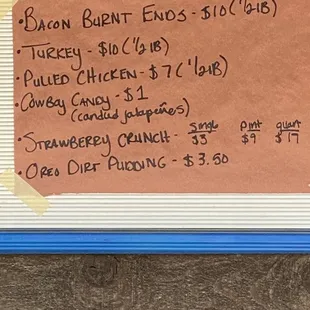 • BACON BURNT ENDS - $10 (1/2 lB)
• TURKEY - $10 (1/2 lB)
• PULLED CHICKEN - $7 (1/2 lB)
• COWBOY CANDY - $1
(candied jalapeños)
• STRAWBERRY CRUNCH - Single $3 Pint $9 quart $17
• OREO DIRT PUDDING - $3.50